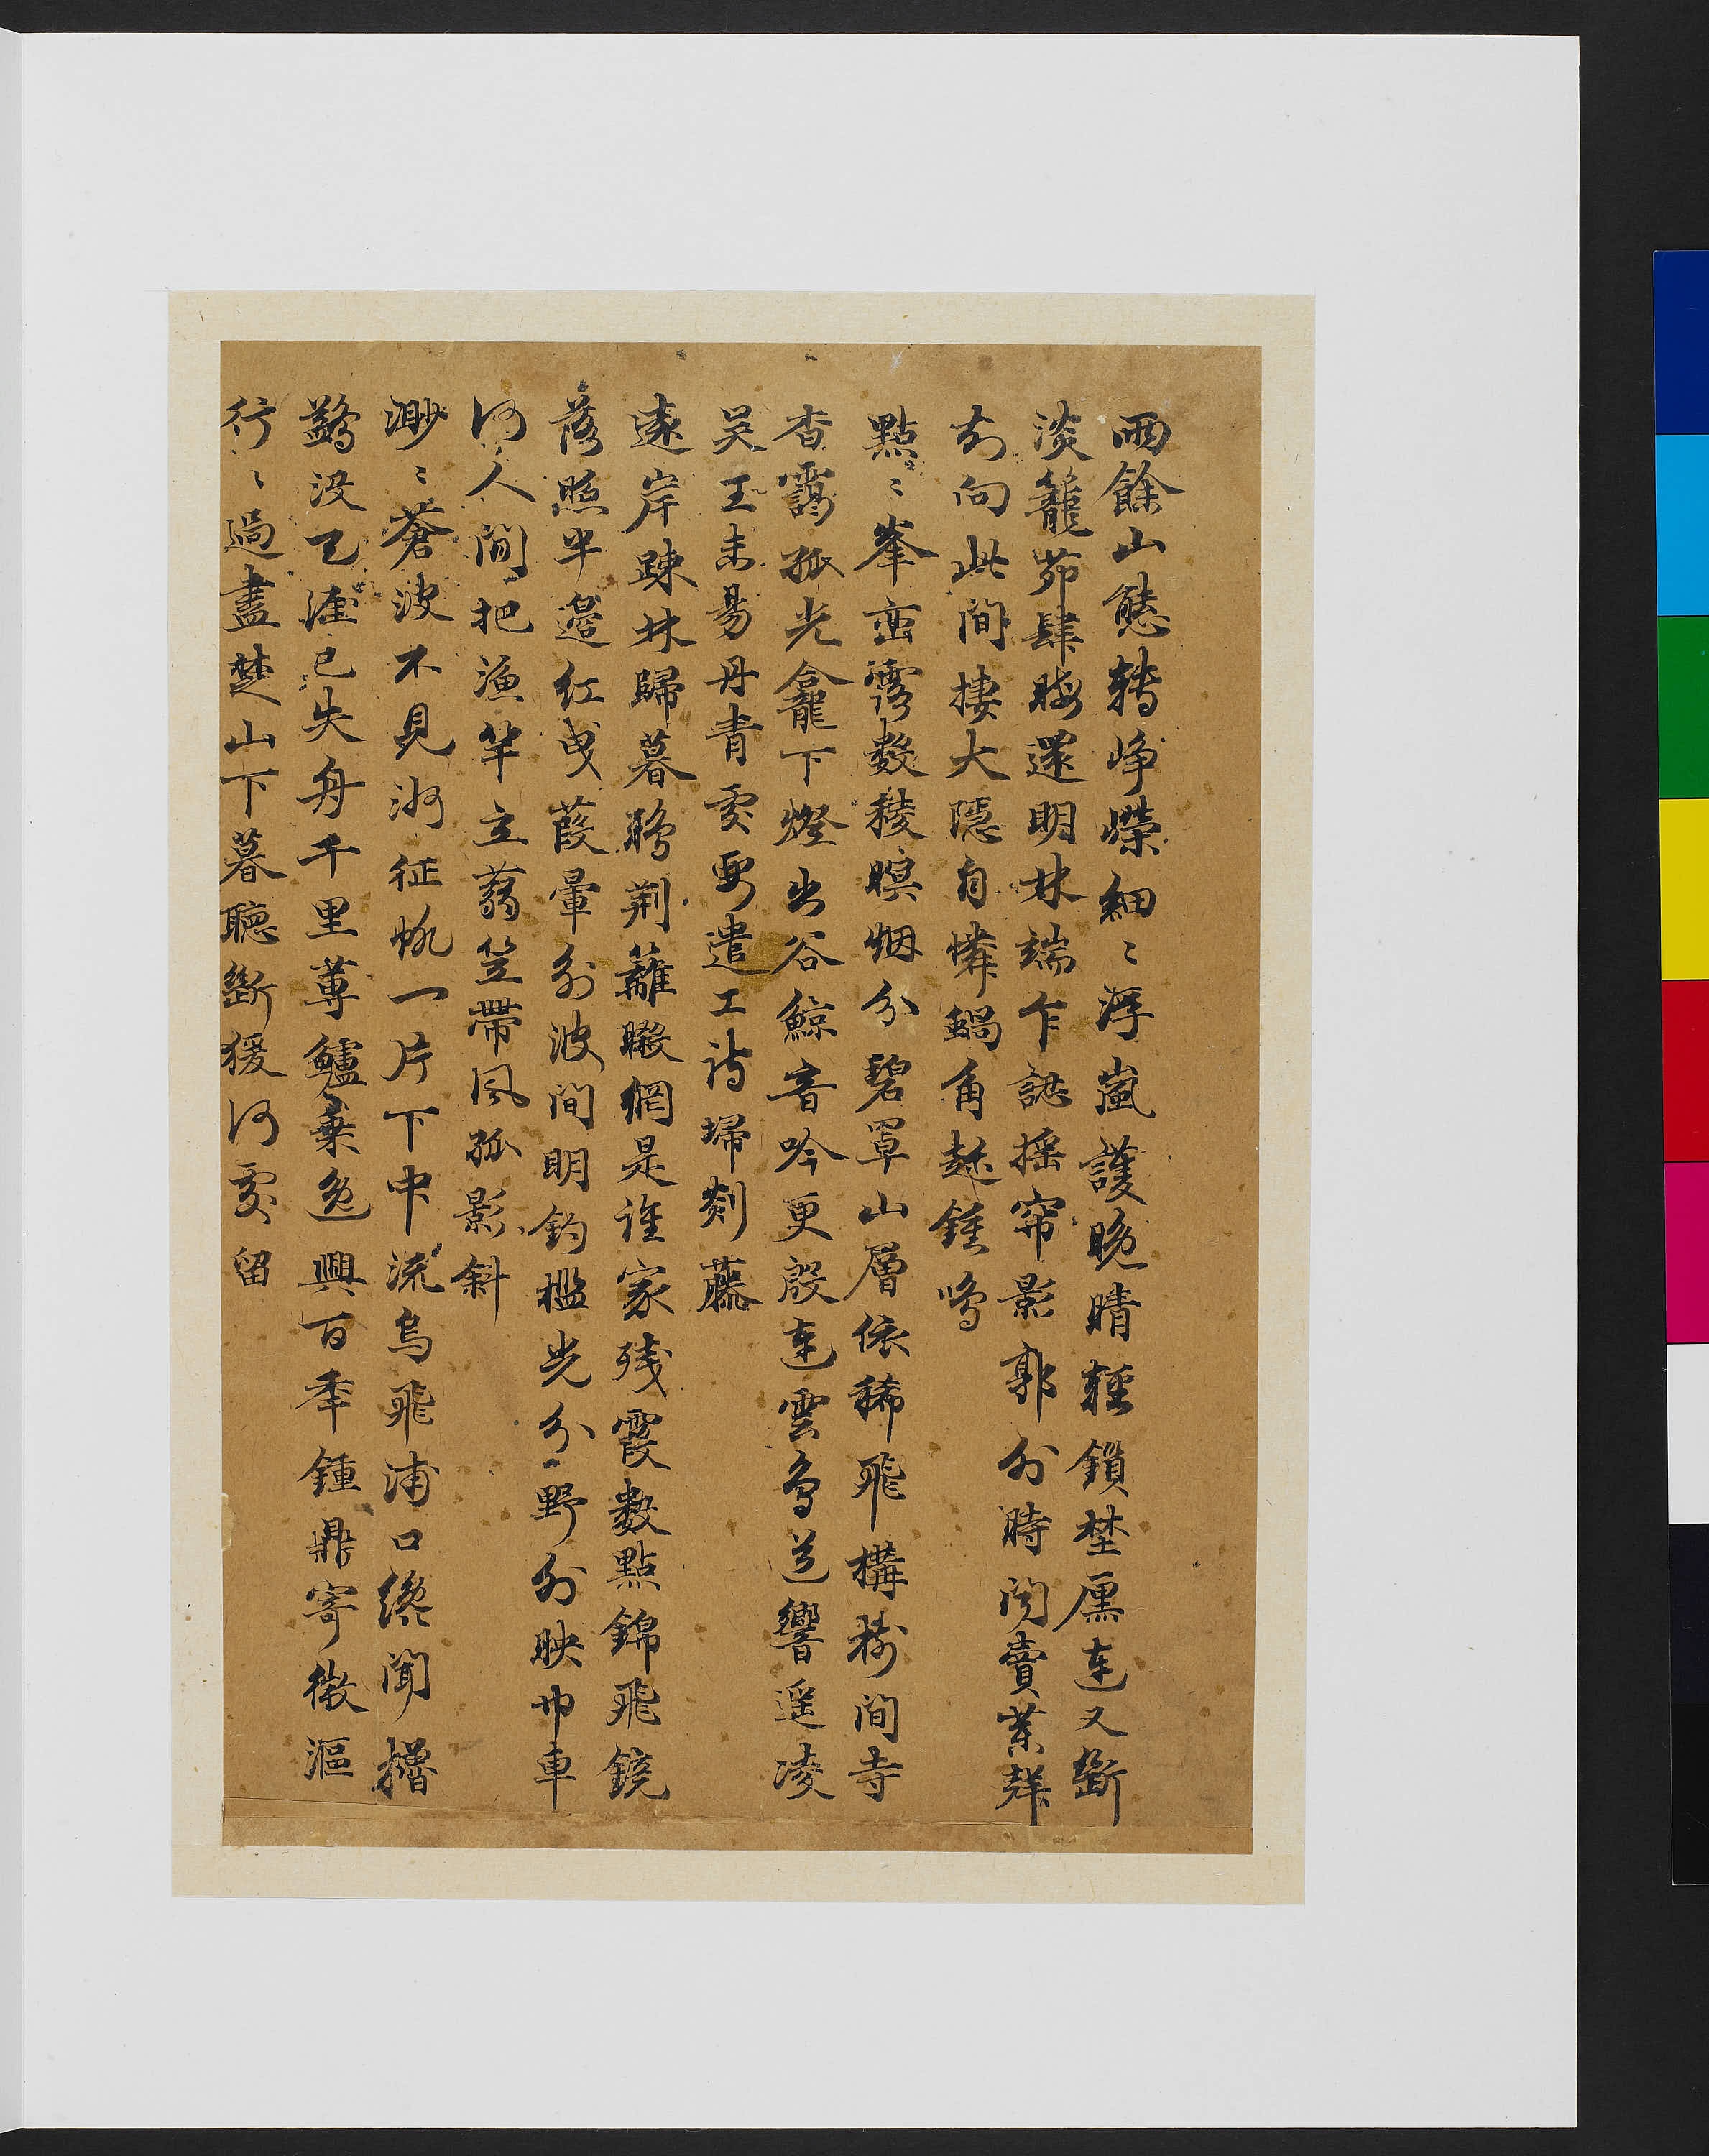 雨餘山態轉崢嶸細〻浮嵐護晚晴輕鎖墅廛連又斷
淡籠茆肆晦還明林端乍認搖帘影郭外時聞賣業聲
向此間棲大隱自憐蝸角趂鍾鳴
點〻峯巒霧數稜暝烟分碧罩山層依稀飛構樹間寺
杳靄孤光龕下燈出谷鯨音吟更殷連雲鳥道響遥凌
吳王未易丹青處要遣工詩埽剡藤
遠岸踈林歸暮鴉荆蘺曬網是誰家殘霞數點錦飛鏡
落照半邊紅曳葭暈外波間明釣檻光分野外映巾車
何人間把漁竿立蒻笠帶風孤影斜
渺〻蒼波不見洲征帆一片下中流烏飛浦口纔聞櫓
鷁沒天涯已失舟千里蓴鱸乗逸興百年鍾鼎寄微漚
行〻過盡楚山下暮聽斷猨何處留